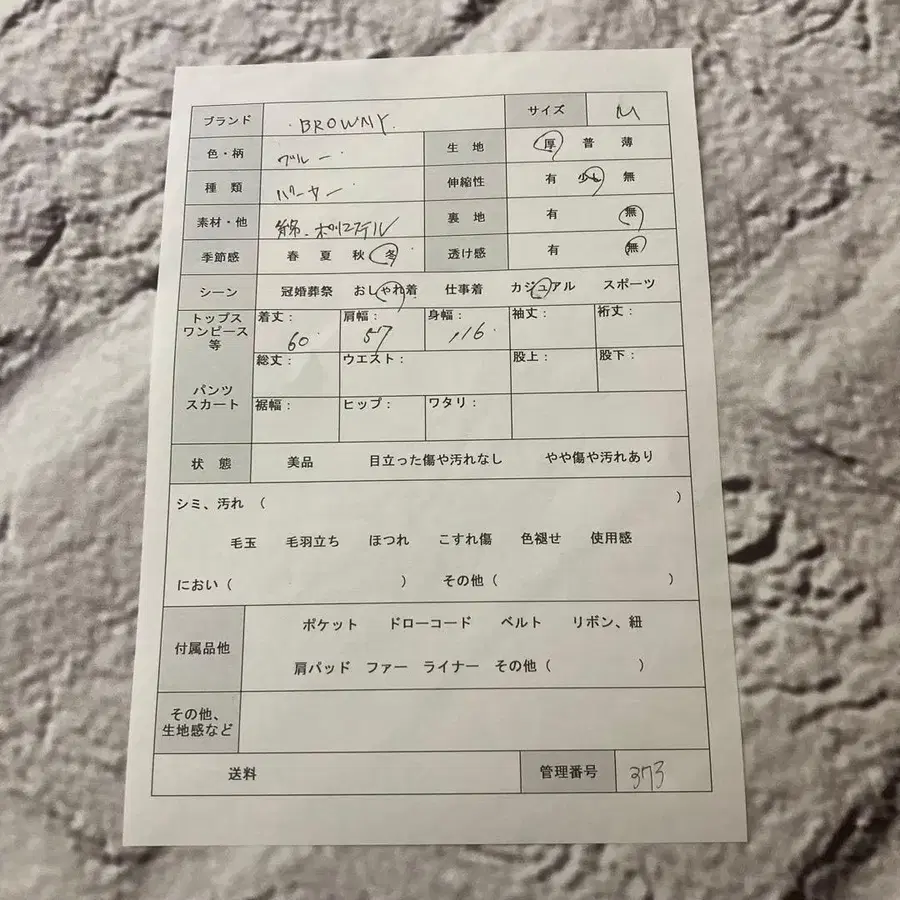 ブランド BROWNY サイズ M
色・柄 ブルー 生 地 厚 普 薄
種 類 パーカー 伸縮性 有 少し 無
素材・他 綿・ポリエステル 裏 地 有 無
季節感 春 夏 秋 冬 透け感 有 無
シーン 冠婚葬祭 おしゃれ着 仕事着 カジュアル スポーツ
トップス ワンピース 等 着丈: 60 肩幅: 57 身幅: 116 袖丈: 裄丈:
パンツ スカート 総丈: ウエスト: 股上: 股下:
裾幅: ヒップ: ワタリ:
状 態 美品 目立った傷や汚れなし やや傷や汚れあり
シミ、汚れ ( )
毛玉 毛羽立ち ほつれ こすれ傷 色褪せ 使用感
におい ( ) その他 ( )
付属品他 ポケット ドローコード ベルト リボン、紐
肩パッド ファー ライナー その他 ( )
その他、
生地感など
送料 管理番号 373